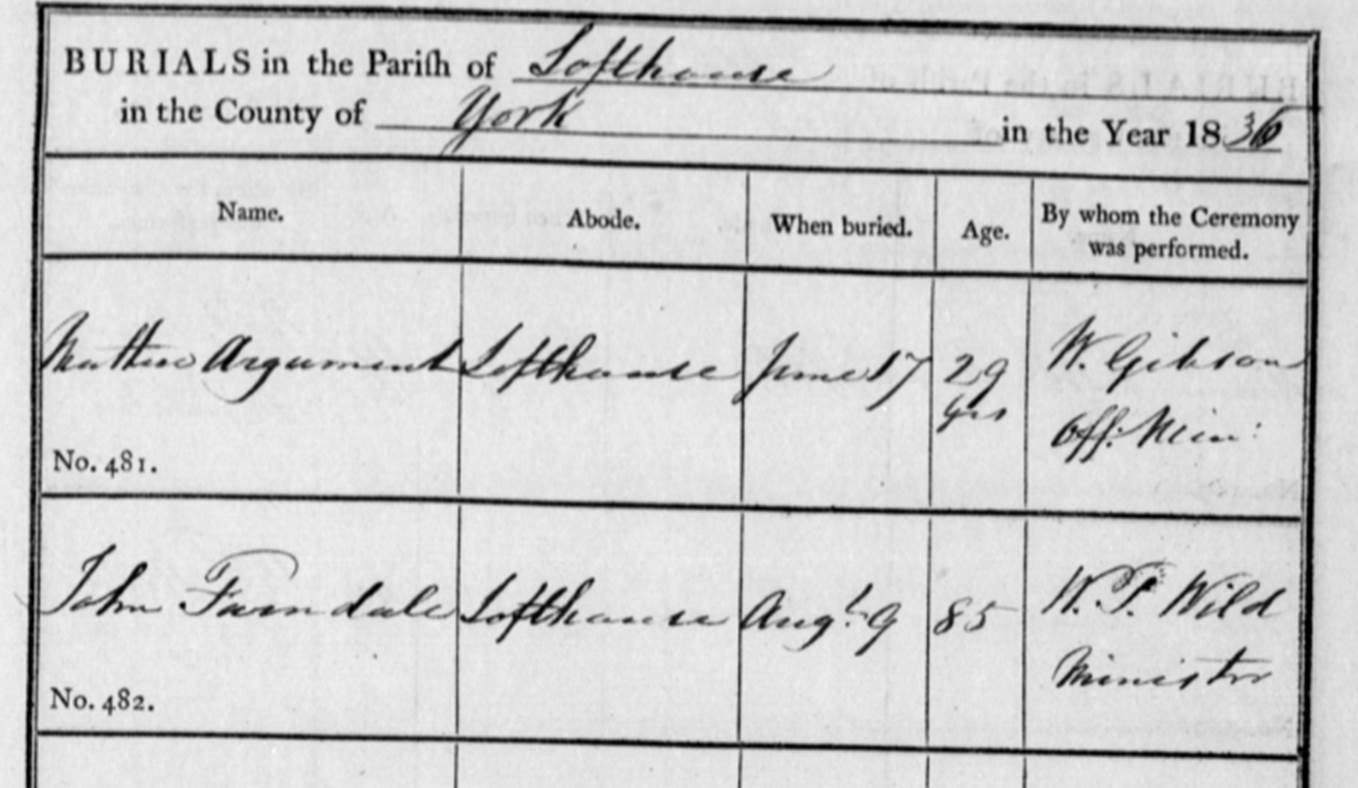 BURIALS in the Pariſh of Lofthouse
in the County of York in the Year 1836
Name. Abode. When buried. Age. By whom the Ceremony
was performed.
Matthew Argument Lofthouse June 17 29 W. Gibson
yrs Off: Min:
No. 481.
John Farndale Lofthouse Augt. 9 85 W. P. Wild
Minister
No. 482.